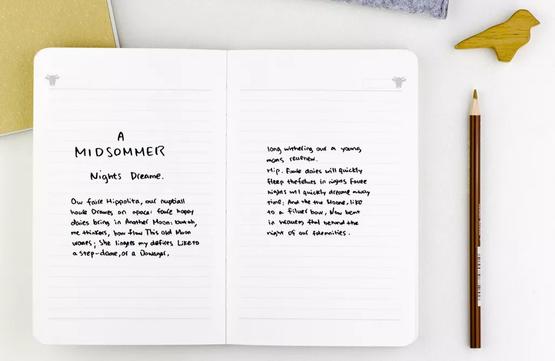 A
MIDSOMMER
Nights Dreame.
Our faire Hippolita, our nuptiall
houre Drawes on apace: foure happy
daies bring in Another Moon: but oh,
me thinkes, how slow This old Moon
wanes; She lingers my desires Like to
a step-dame, or a Dowager,
long withering out a young
mans revennew.
Hip. Foure daies will quickly
steep themselves in nights Foure
nights wil quickly dreame away
time: And the the Moone, like
to a silver bow, Now bent
in heaven, shal behold the
night of our solemnities.